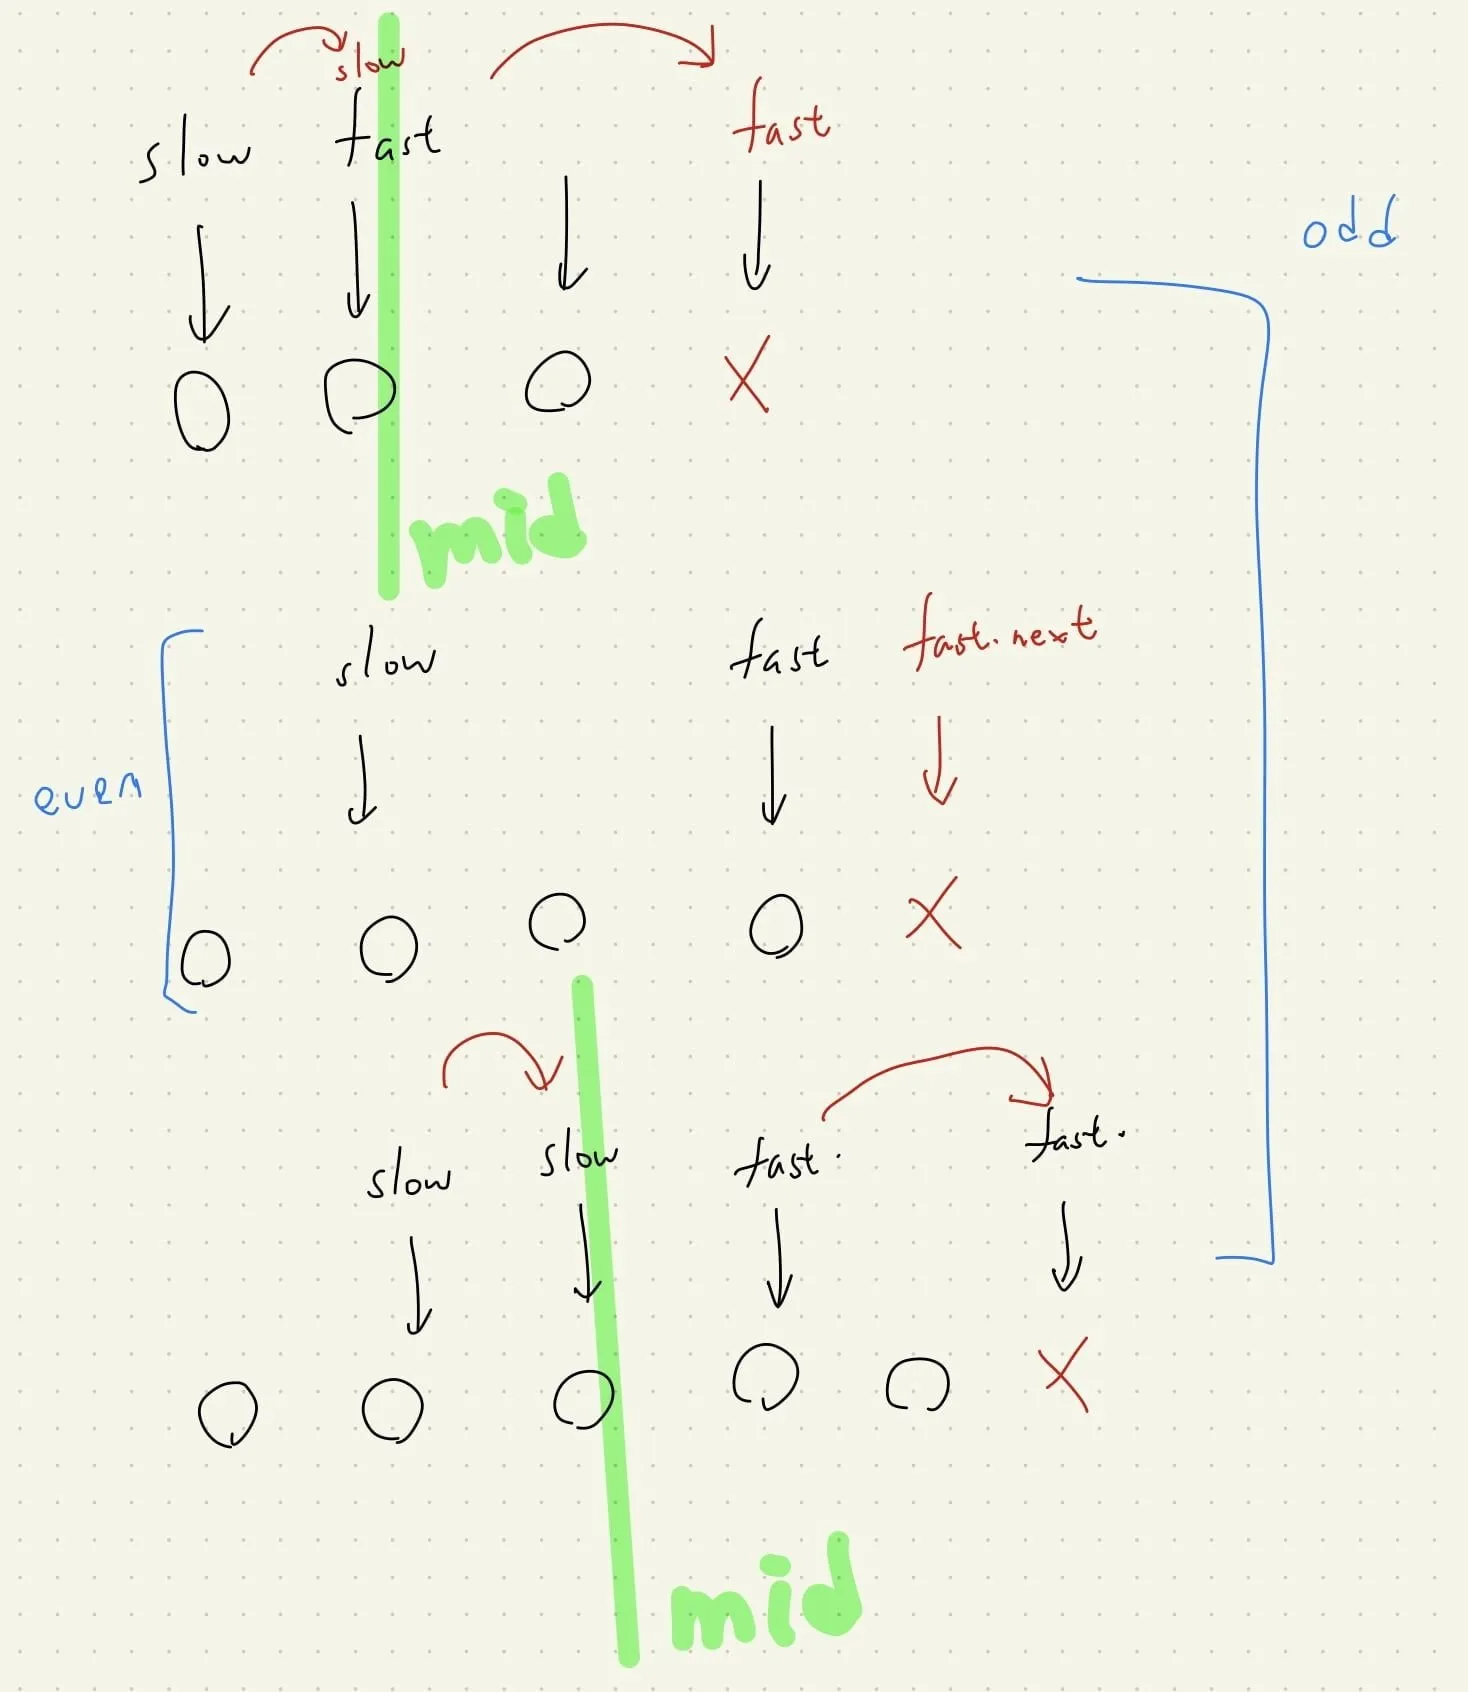 slow
slow fast
fast
odd
mid
slow fast fast.next
even
slow slow fast. fast.
mid